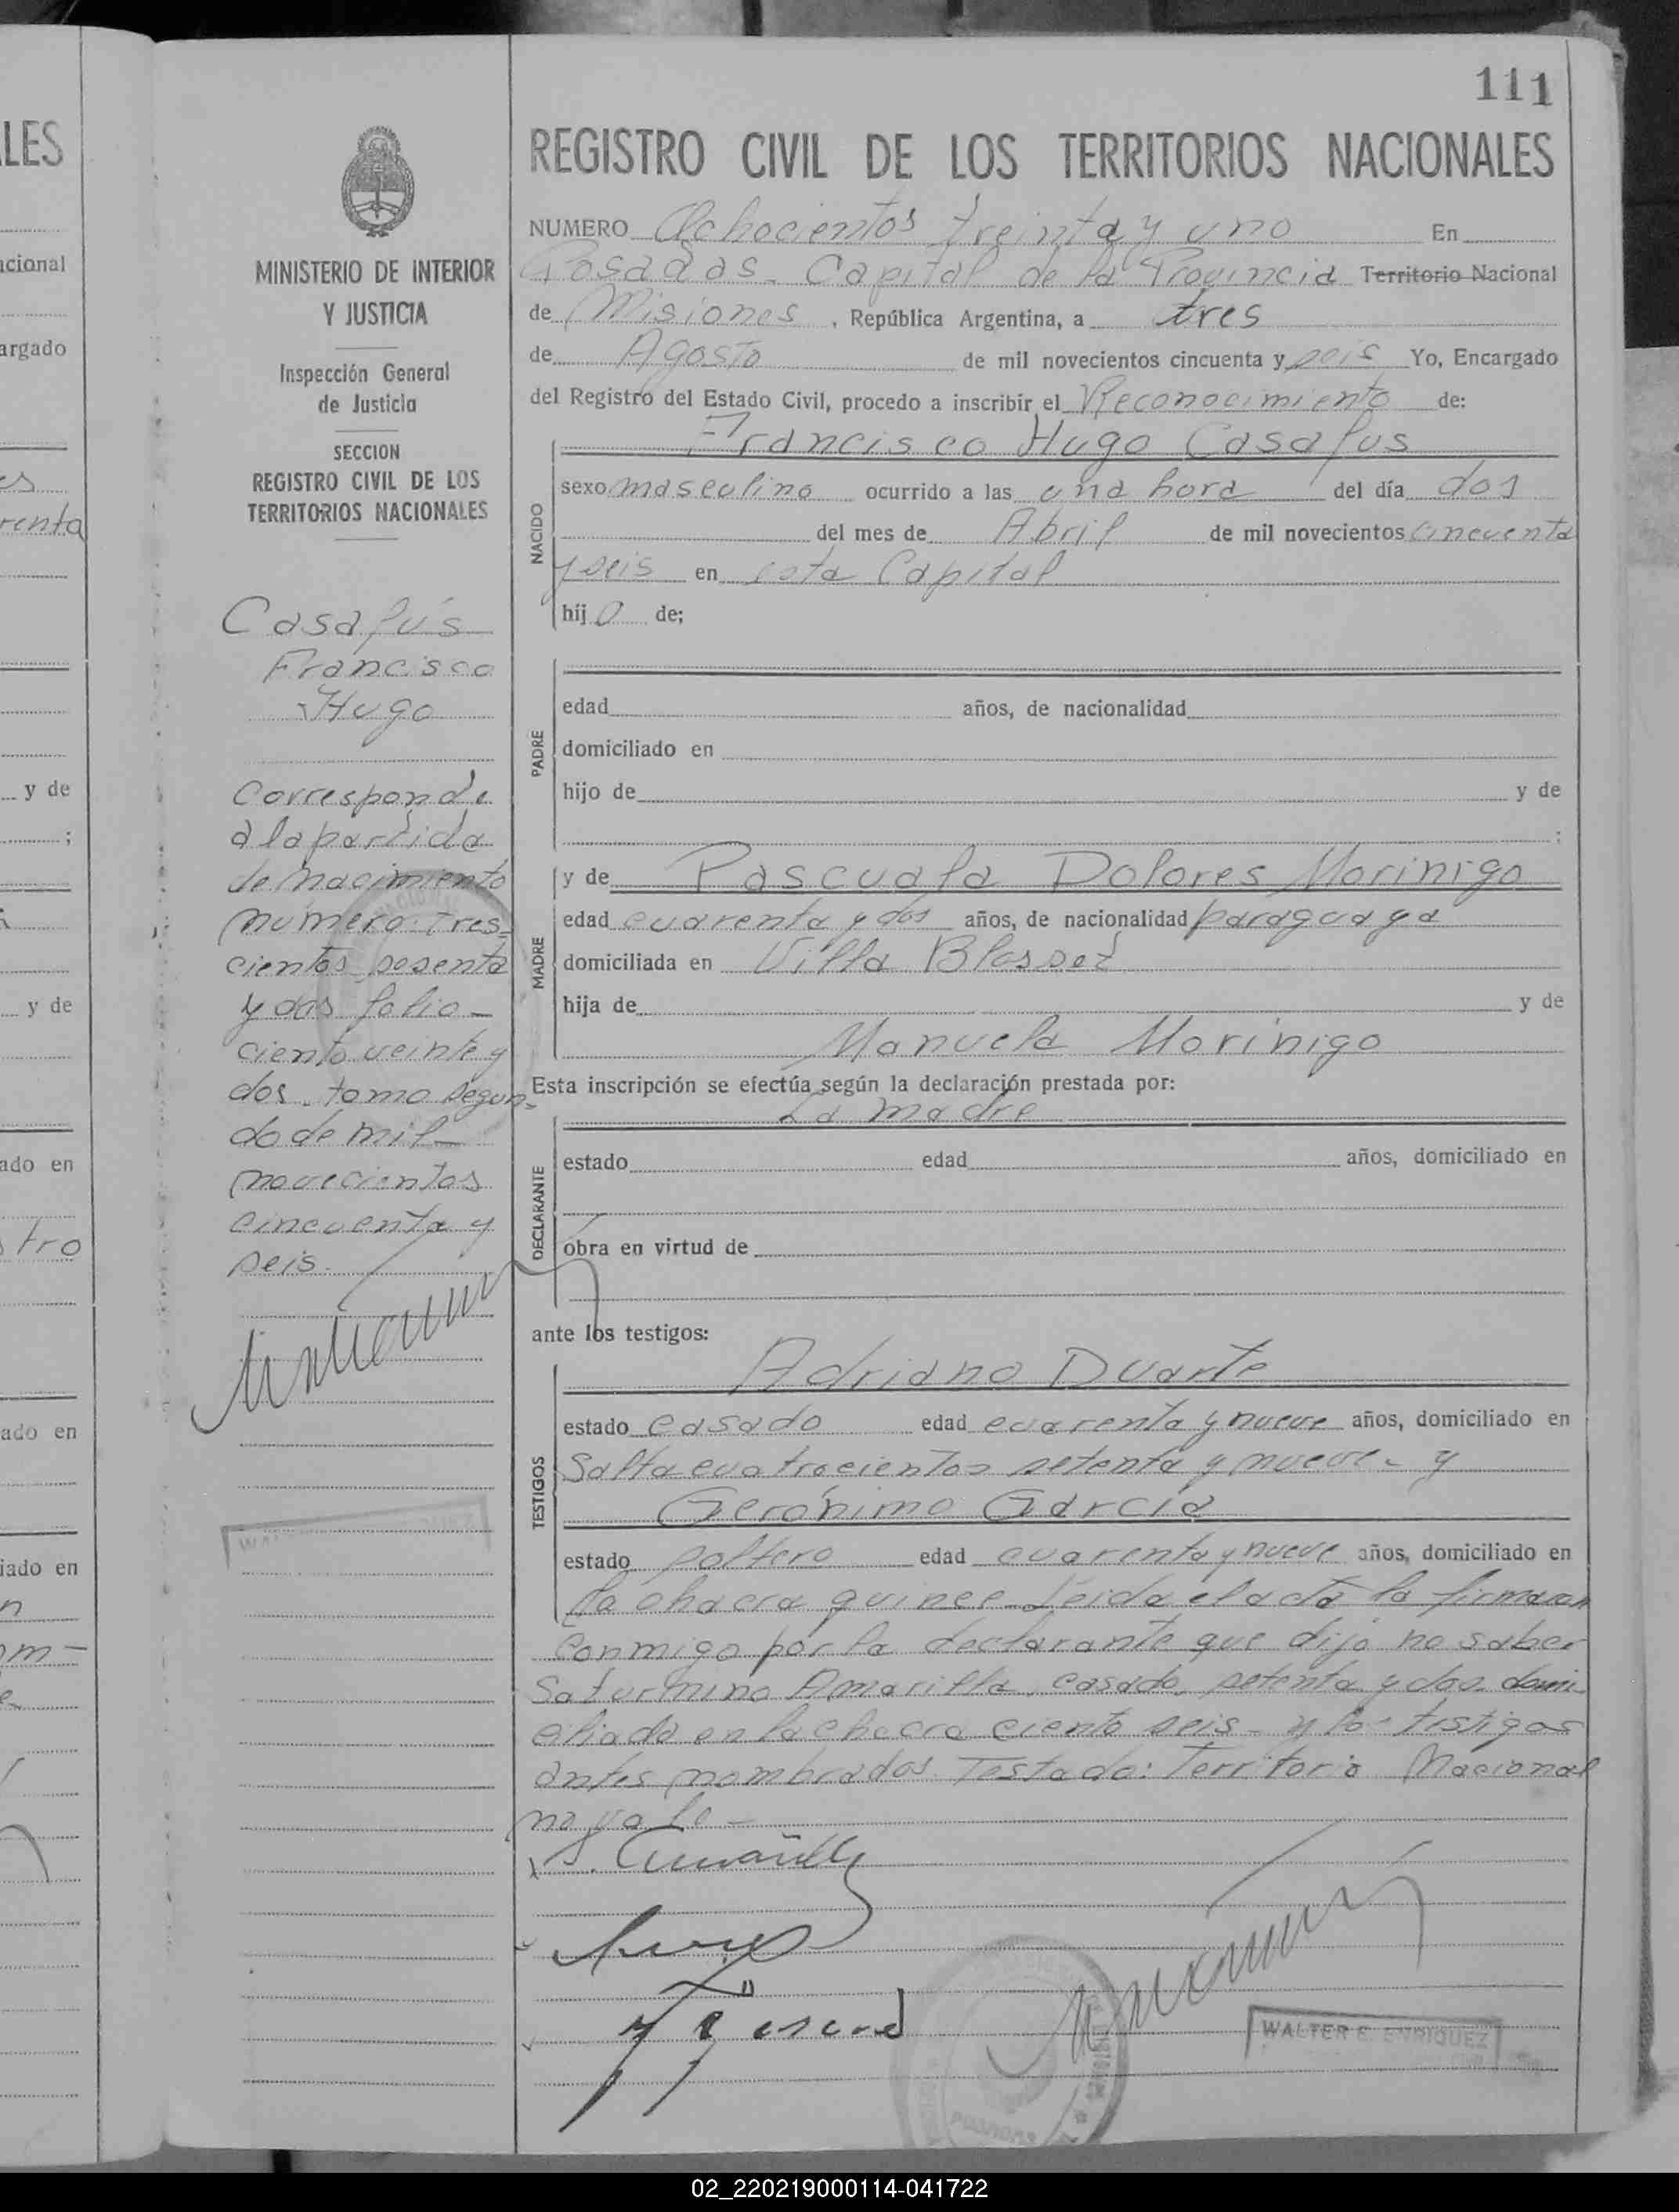 111
LES
REGISTRO CIVIL DE LOS TERRITORIOS NACIONALES
NUMERO Ochocientos treinta y uno En
Posadas - Capital de la Provincia Territorio Nacional
de Misiones, República Argentina, a tres
de Agosto de mil novecientos cincuenta y seis Yo, Encargado
del Registro del Estado Civil, procedo a inscribir el Reconocimiento de:
Francisco Hugo Casafus
NACIDO
sexo masculino ocurrido a las una hora del día dos
del mes de Abril de mil novecientos cincuenta
y seis en esta Capital
hij o de;
PADRE
edad años, de nacionalidad
domiciliado en
hijo de y de
;
y de Pascuala Dolores Morinigo
MADRE
edad cuarenta y dos años, de nacionalidad paraguaya
domiciliada en Villa Blosset
hija de y de
Manuela Morinigo
Esta inscripción se efectúa según la declaración prestada por:
La madre
DECLARANTE
estado edad años, domiciliado en
obra en virtud de
ante los testigos:
Adriano Duarte
TESTIGOS
estado casado edad cuarenta y nueve años, domiciliado en
Salta cuatrocientos setenta y nueve - y
Gerónimo García
estado soltero edad cuarenta y nueve años, domiciliado en
la chacra quince - Leida el acta la firmaran
conmigo por la declarante que dijo no saber
Saturnino Amarilla, casado, setenta y dos, domi
ciliado en la chacra ciento seis - y los testigos
antes nombrados. Testado: Territorio Nacional
no vale -
WALTER E. ENRIQUEZ
MINISTERIO DE INTERIOR
Y JUSTICIA
Inspección General
de Justicia
SECCION
REGISTRO CIVIL DE LOS
TERRITORIOS NACIONALES
Casafús
Francisco
Hugo
Corresponde
a la partida
de nacimiento
número tres-
cientos sesenta
y dos folio -
ciento veinte y
dos - tomo segun-
do de mil -
novecientos
cincuenta y
seis -
acional
argado
es
renta
y de
;
y de
ado en
tro
ado en
iado en
n
om -
02_220219000114-041722